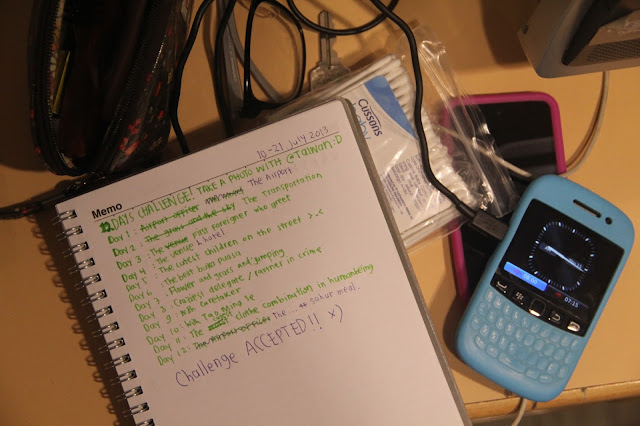 10-21 July 2013
Memo
12 DAYS CHALLENGE! TAKE A PHOTO WITH @TAIWAN :D
Day 1 : Airport officer The Airport
Day 2 : The giant and the The Transportation
Day 3 : The venue First foreigner who greet
Day 4 : The venue & hotel
Day 5 : The cutest children on the street >.<
Day 6 : The best
Day 7 : Flower and grass and jumping
Day 8 : Craziest delegate / partner in crime
Day 9 :
Day 10 :
Day 11 : The clothe combination in
Day 12 : The Airport officer The ... meal.
Challenge ACCEPTED!! x)
Cussons
baby
07:25